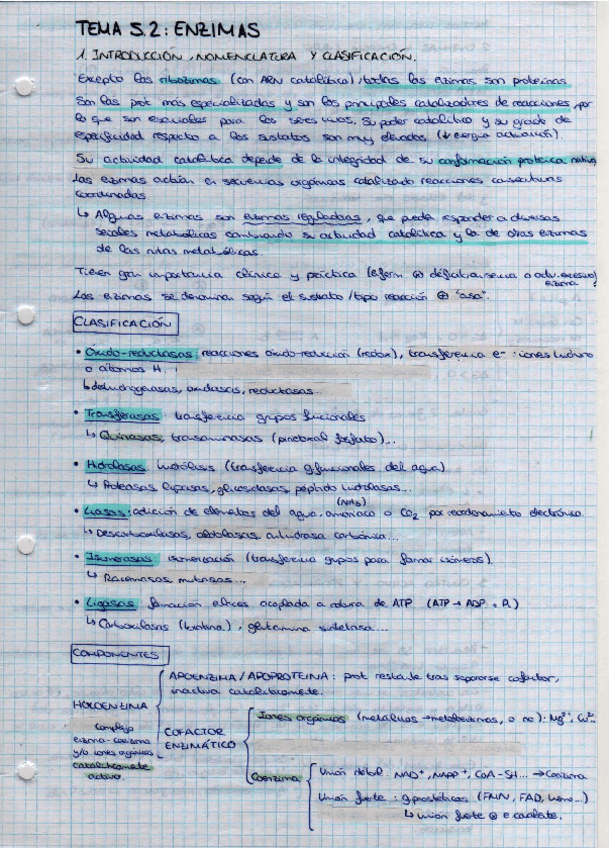 TEMA 5.2: ENZIMAS
1. INTRODUCCIÓN, NOMENCLATURA Y CLASIFICACIÓN.
Excepto las ribozimas (con ARN catalítico), todas las enzimas son proteínas
Son las prot más especializadas y son los principales catalizadores de reacciones, por
lo que son esenciales para los seres vivos. Su poder catalítico y su grado de
especificidad respecto a los sustratos son muy elevados (↓ energía activación).
Su actividad catalítica depende de la integridad de su conformación proteica nativa
Las enzimas actúan en secuencias orgánicas catalizando reacciones consecutivas
coordinadas
↳ Algunas enzimas son enzimas reguladoras, que puede responder a diversas
señales metabólicas cambiando su actividad catalítica y la de otras enzimas
de las rutas metabólicas.
Tienen gran importancia clínica y práctica (enferm défict/ausencia o activ. excesiva)
enzima
Las enzimas se denominan según el sustrato / tipo reacción ⊕ "asa".
CLASIFICACIÓN
• Óxido-reductasas: reacciones óxido-reducción (redox), transferencia e- : iones hidruro
o átomos H.
↳ deshidrogenasas, oxidasas, reductasas...
• Transferasas: transferencia grupos funcionales
↳ Quinasas, transaminasas (piridoxal fosfato)...
• Hidrolasas: hidrólisis (transferencia g. funcionales del agua)
↳ Proteasas, lipasas, glicosidasas, péptido hidrolasas...
(NH3)
• Liasas: adición de elementos del agua, amoniaco o CO2 por reordenamiento electrónico.
↳ Descarboxilasas, aldolasas, anhidrasa carbónica...
• Isomerasas: isomerización (transferencia grupos para formar isómeros).
↳ Racemasas, mutasas...
• Ligasas: formación enlaces acoplada a rotura de ATP (ATP → ADP + Pi)
↳ Carboxilasas (biotina), glutamina sintetasa...
COMPONENTES
HOLOENZIMA
complejo
enzima-coenzima
y/o iones orgánicos
catalíticamente
activo.
APOENZIMA / APOPROTEINA: prot restante tras separarse cofactor,
inactiva catalíticamente.
COFACTOR
ENZIMÁTICO
Iones orgánicos (metálicos → metaloenzimas, o no): Mg2+, Cu2+...
Coenzima
Unión débil: NAD+, NADP+, CoA-SH... → Coenzima
Unión fuerte: g. prostéticos (FMN, FAD, hemo...)
↳ unión fuerte covalente.